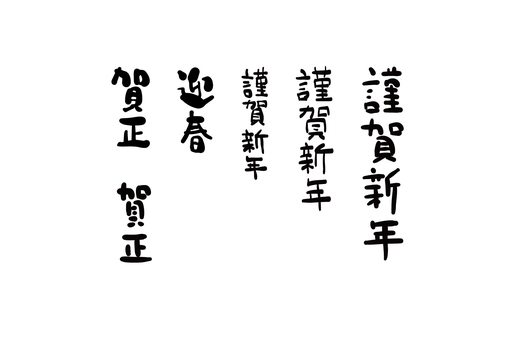 謹賀新年
謹賀新年
謹賀新年
迎春
賀正
賀正